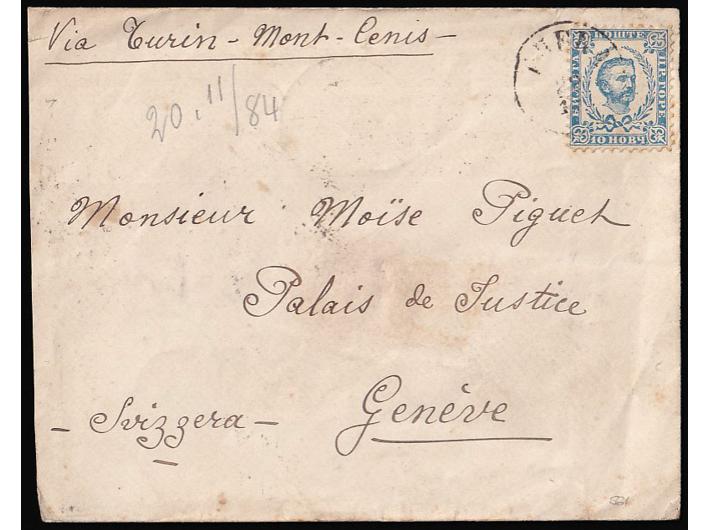 Via Turin - Mont-Cenis -
20. 11/84
ПОШТЕ
ЦР. ГОРЕ
10 НОВЧ
Monsieur Moïse Piguet
Palais de Justice
Genève
- Svizzera -